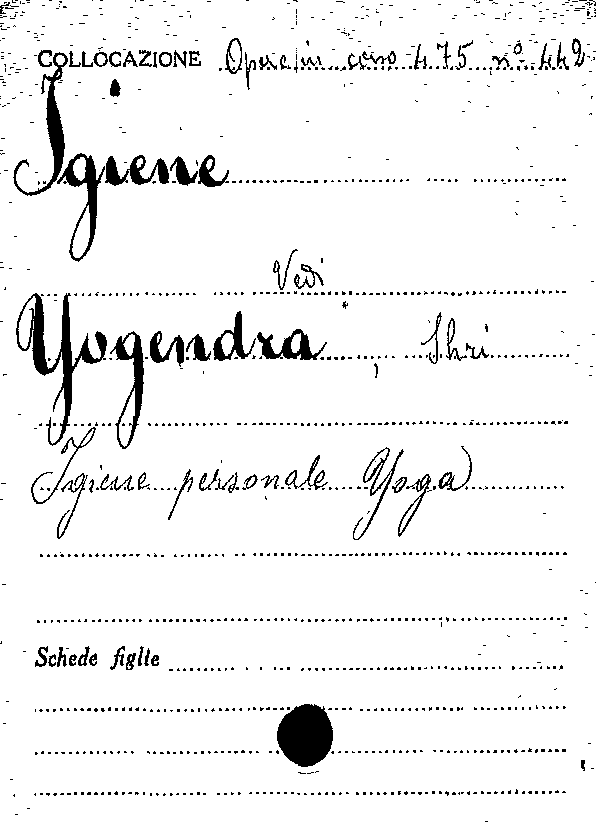 COLLOCAZIONE Opere in corso 475 nº 442
Igiene
Vedi
Yogendra, Shri
Igiene personale Yoga
Schede figlie